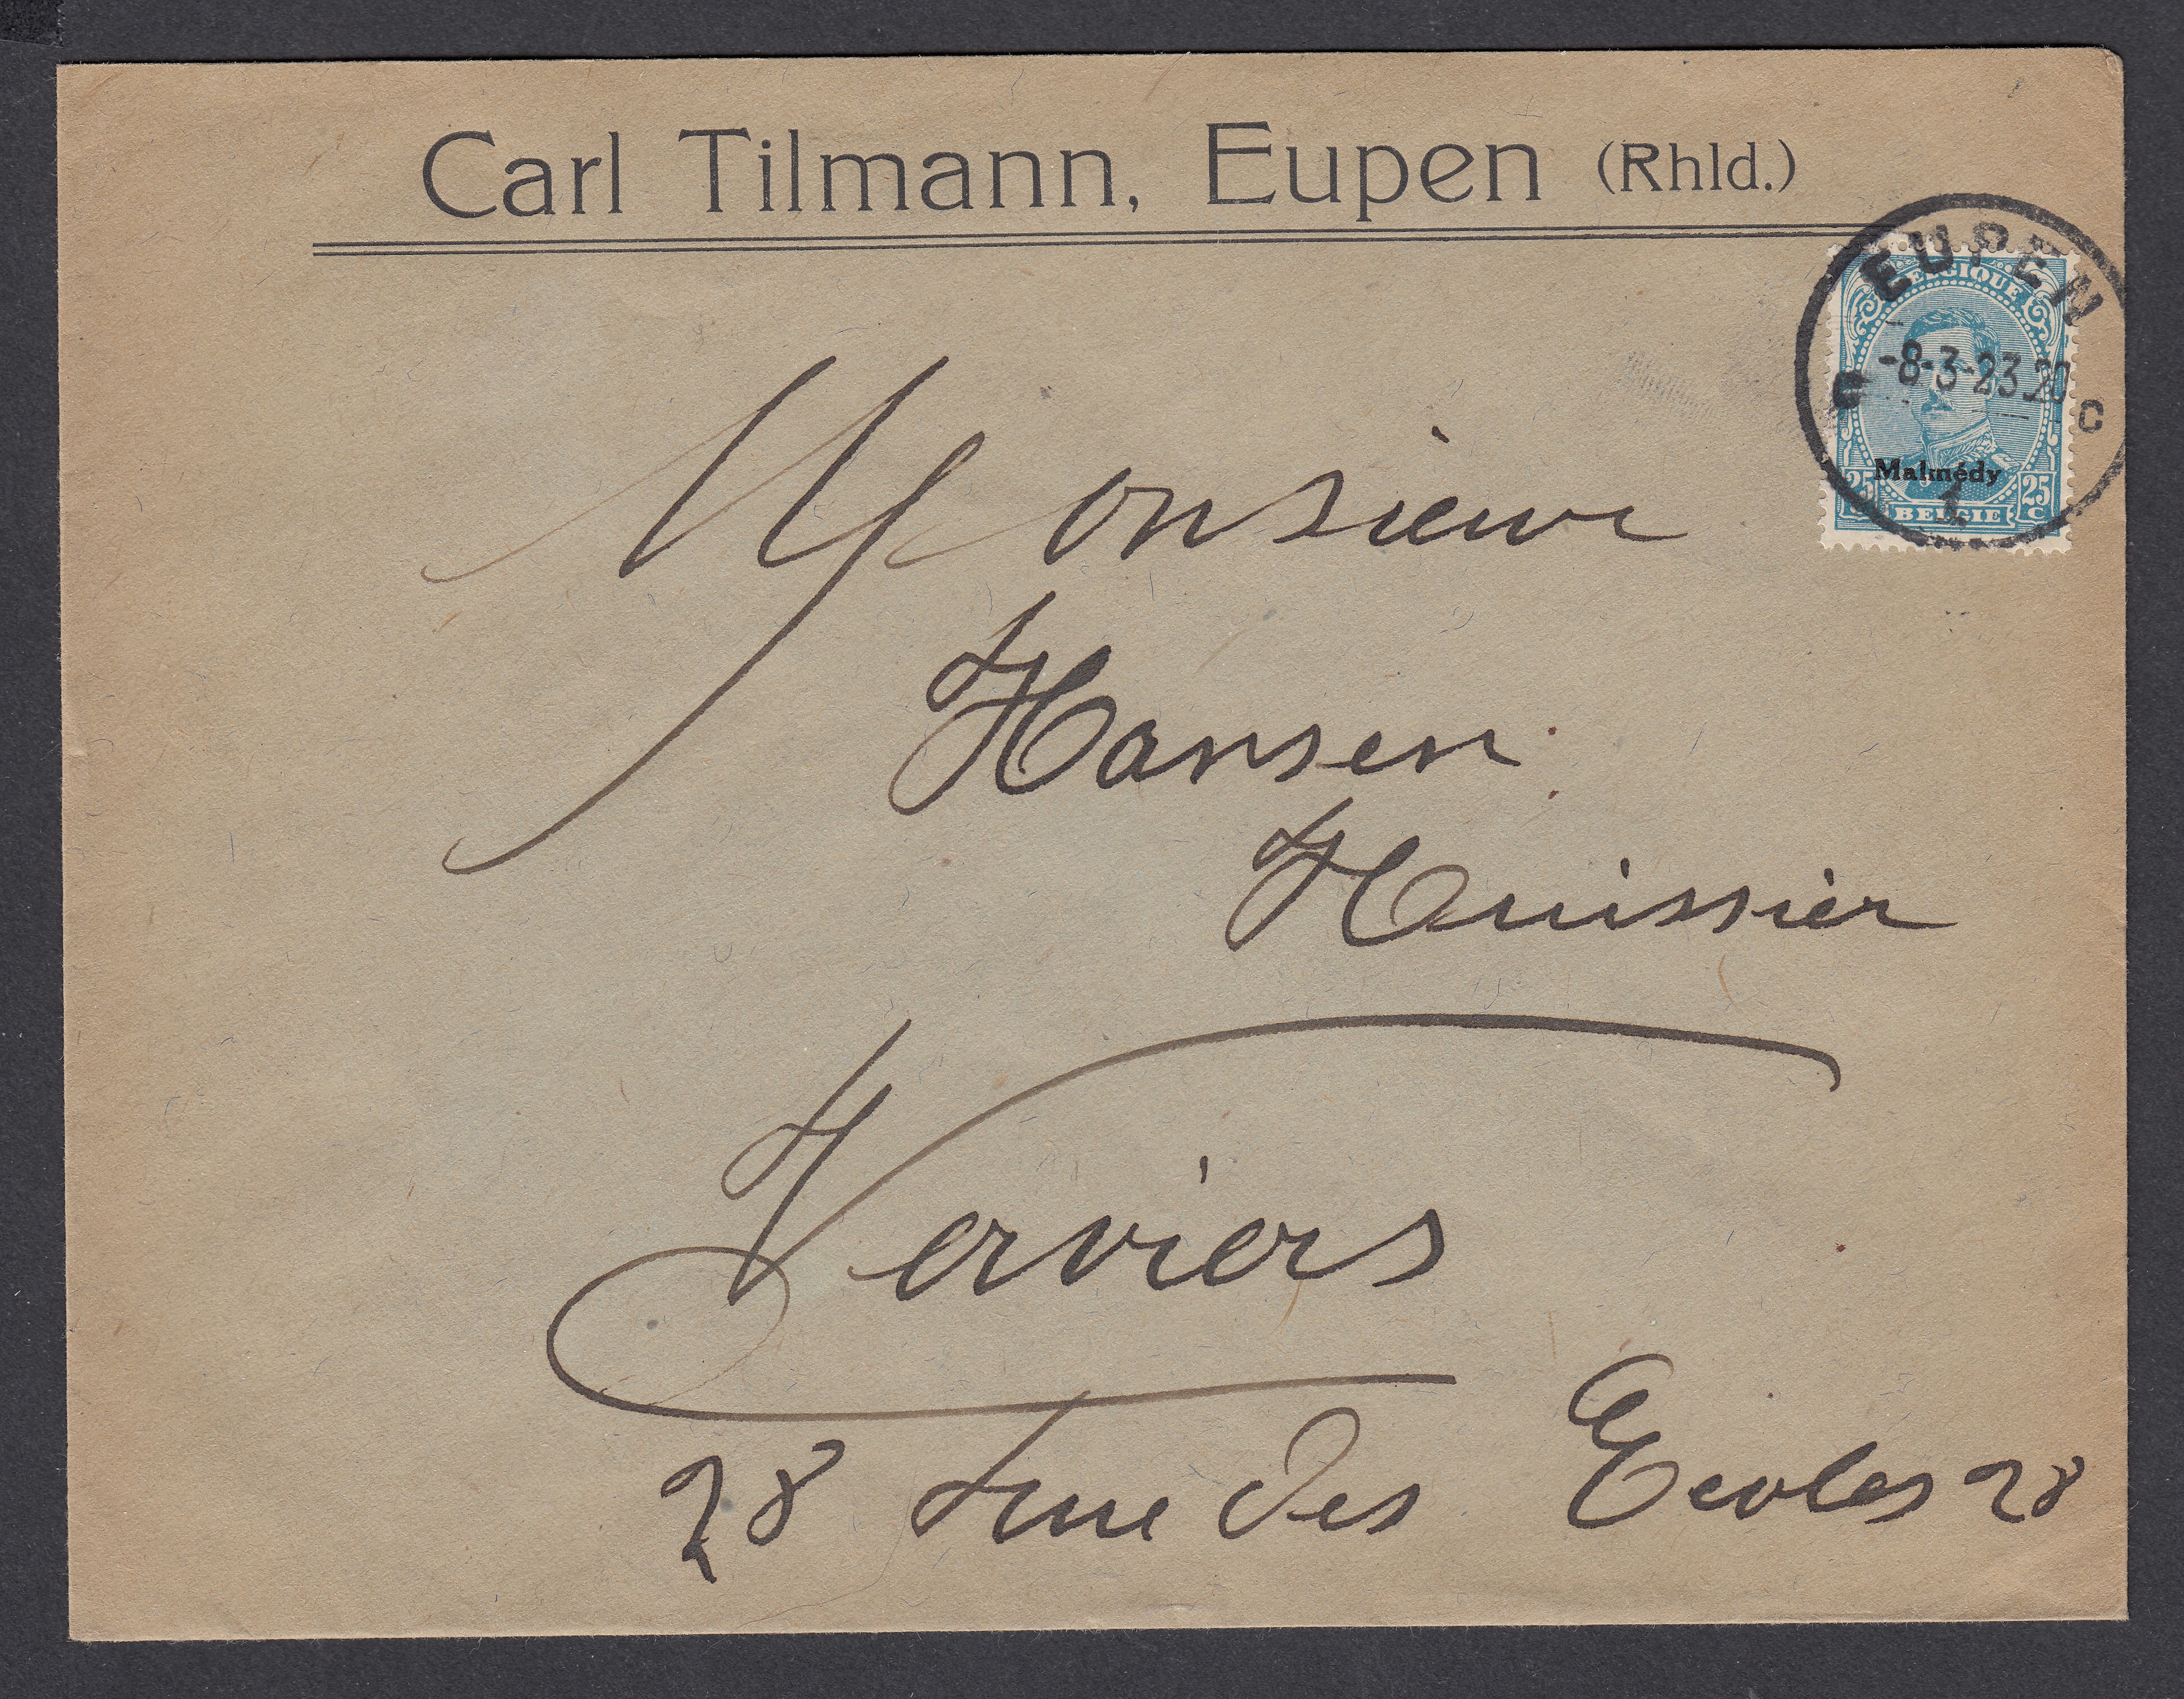 Carl Tilmann, Eupen (Rhld.)
EUPEN
BELGIQUE
-8-3-23 20
C C
Malmédy
25 25
C C
BELGIE
1
Monsieur
Hansen
Huissier
Verviers
28 rue des Ecoles 28